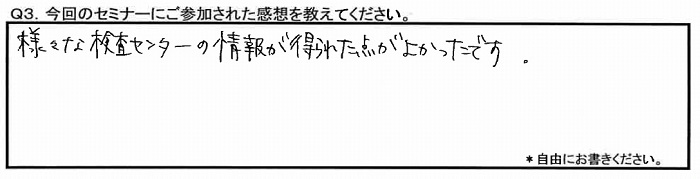 Q3．今回のセミナーにご参加された感想を教えてください。
様々な検査センターの情報が得られた点がよかったです。
＊自由にお書きください。